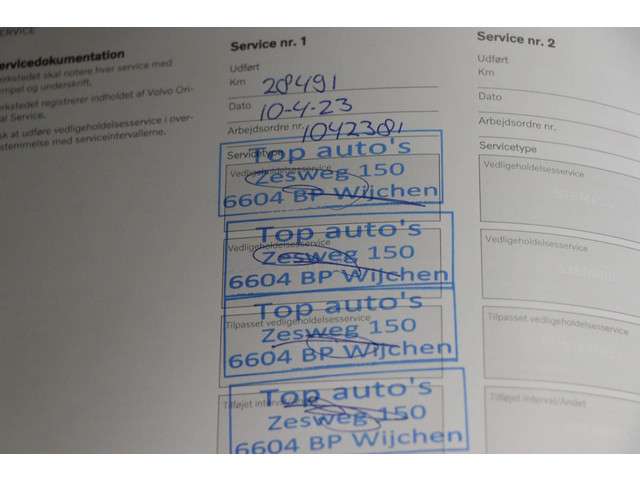 SERVICE
ervicedokumentation
erkstedet skal notere hver service med
empel og underskrift.
erkstedet registrerer indholdet af Volvo Ori-
al Service.
sk at udføre vedligeholdelsesservice i over-
stemmelse med serviceintervallerne.
Service nr. 1
Udført
Km 28491
Dato 10-4-23
Arbejdsordre nr. 1042381
Servicetype
Top auto's
Vedligeholdelsesservice
Zesweg 150
6604 BP Wijchen
Top auto's
Vedligeholdelsesservice
Zesweg 150
6604 BP Wijchen
Top auto's
Tilpasset vedligeholdelsesservice
Zesweg 150
6604 BP Wijchen
Top auto's
Tilføjet interval
Zesweg 150
6604 BP Wijchen
Service nr. 2
Udført
Km
Dato
Arbejdsordre nr.
Servicetype
Vedligeholdelsesservice
Vedligeholdelsesservice
Tilpasset vedligeholdelsesservice
Tilføjet interval/Andet